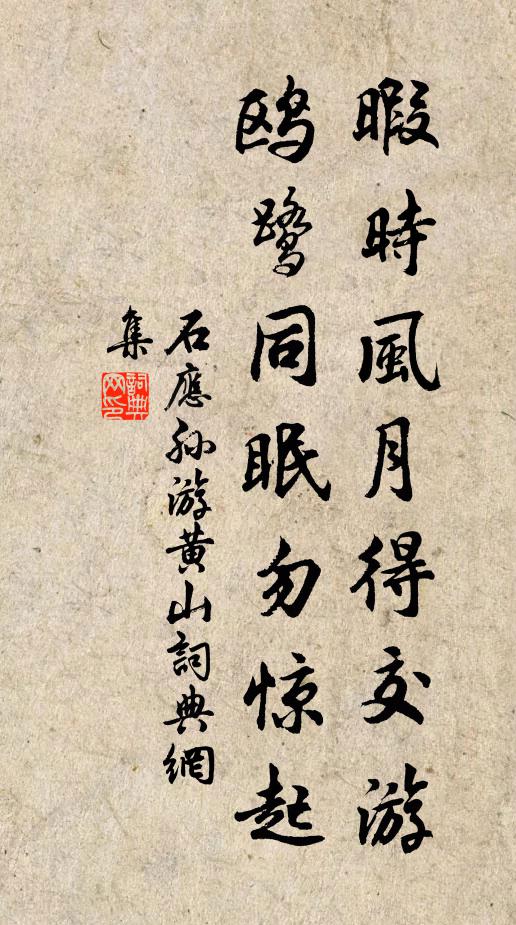 暇時風月得交游
鸥鹭同眠勿惊起
石應孫游黄山詞典網
集
詞典
网印